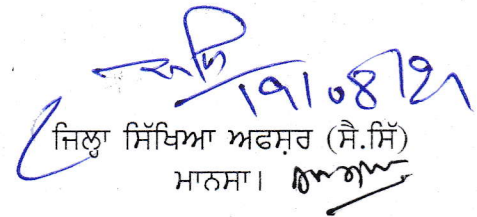 19/08/21
ਜਿਲ੍ਹਾ ਸਿੱਖਿਆ ਅਫਸ਼ਰ (ਸੈ.ਸਿੱ)
ਮਾਨਸਾ।